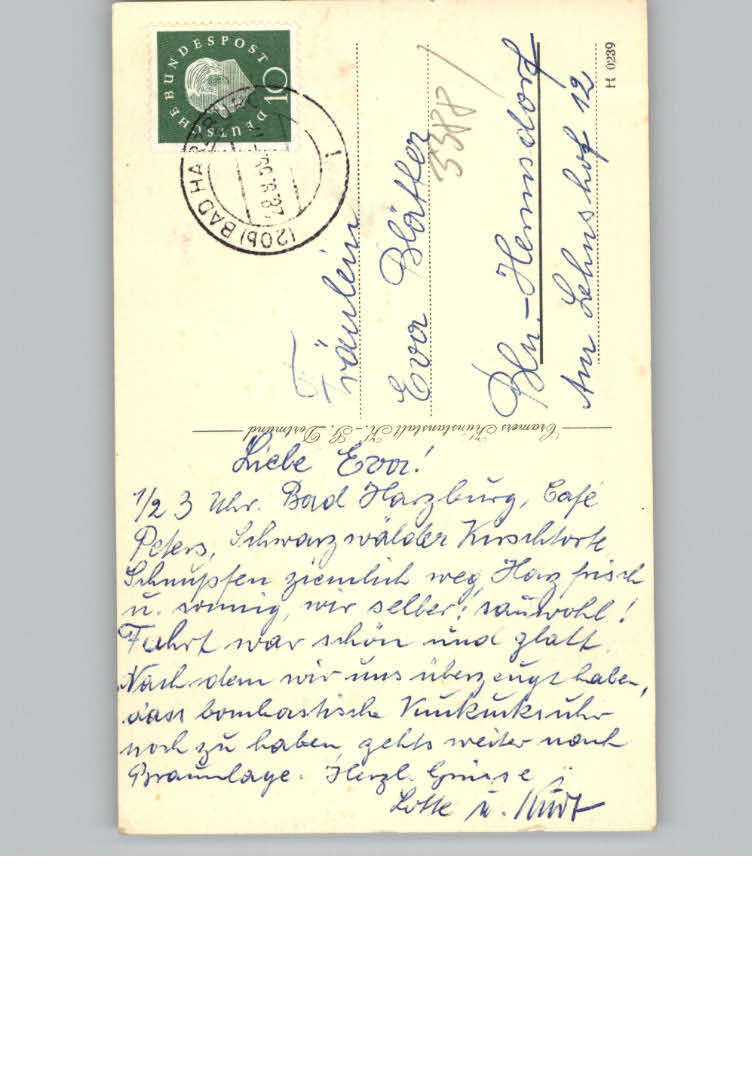 Liebe Eva!
1/2 3 Uhr. Bad Harzburg, Café
Peters, Schwarzwälder Kirschtorte
Schnupfen ziemlich weg, Harz frisch
u. sonnig, wir selber: sauwohl!
Fahrt war schön und glatt.
Nach dem wir uns überzeugt haben,
dass bombastische Kuckucksuhr
noch zu haben, gehts weiter nach
Braunlage. Herzl. Grüsse
Lotte u. Kurt
Fräulein
Eva Blätter
Bln.-Hermsdorf
Am Lehnshof 12
3388
H 0239
Cramers Kunstanstalt K.-G. Dortmund
DEUTSCHE BUNDESPOST
10
(20b) BAD HARZBURG